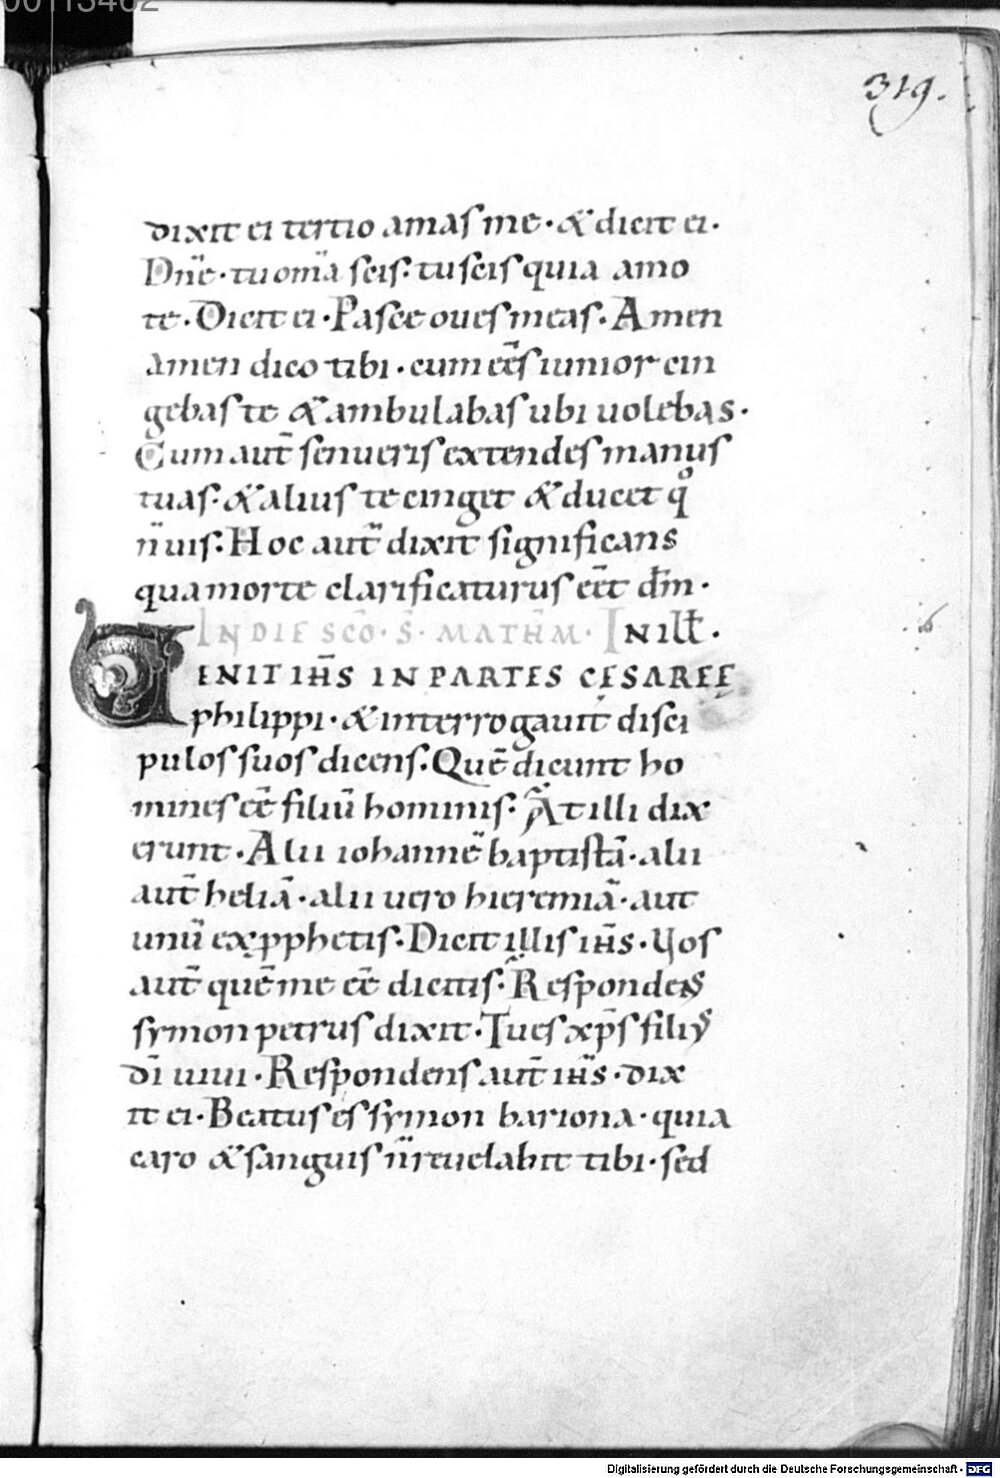 00113462
319.
dixit ei tertio amas me · & dicit ei ·
Dñe · tu om̃a scis · tu scis quia amo
te · Dicit ei · Pasce oues meas · Amen
amen dico tibi · cum eẽs iunior cin
gebas te & ambulabas ubi uolebas ·
Cum aut̃ senueris extendes manus
tuas · & alius te cinget & ducet qͦ
ñ uis · Hoc aut̃ dixit significans
qua morte clarificaturus eẽt dm̃ ·
IN DIE SCO · S · MATHM · IN ILL̃ ·
VENIT IHS̃ IN PARTES CESAREE
philippi · & interrogauit disci
pulos suos dicens · Quẽ dicunt ho
mines eẽ filiũ hominis · At illi dix
erunt · Alii iohannẽ baptistã · alii
aut̃ heliã · alii uero hieremiã · aut
unũ ex pphetis · Dicit illis ihs̃ · Uos
aut̃ quẽ me eẽ dicitis · Respondens
symon petrus dixit · Tu es xp̃s filiꝰ
dĩ uiui · Respondens aut̃ ihs̃ · dix
it ei · Beatus es symon bariona · quia
caro & sanguis ñ reuelabit tibi · sed
Digitalisierung gefördert durch die Deutsche Forschungsgemeinschaft - DFG